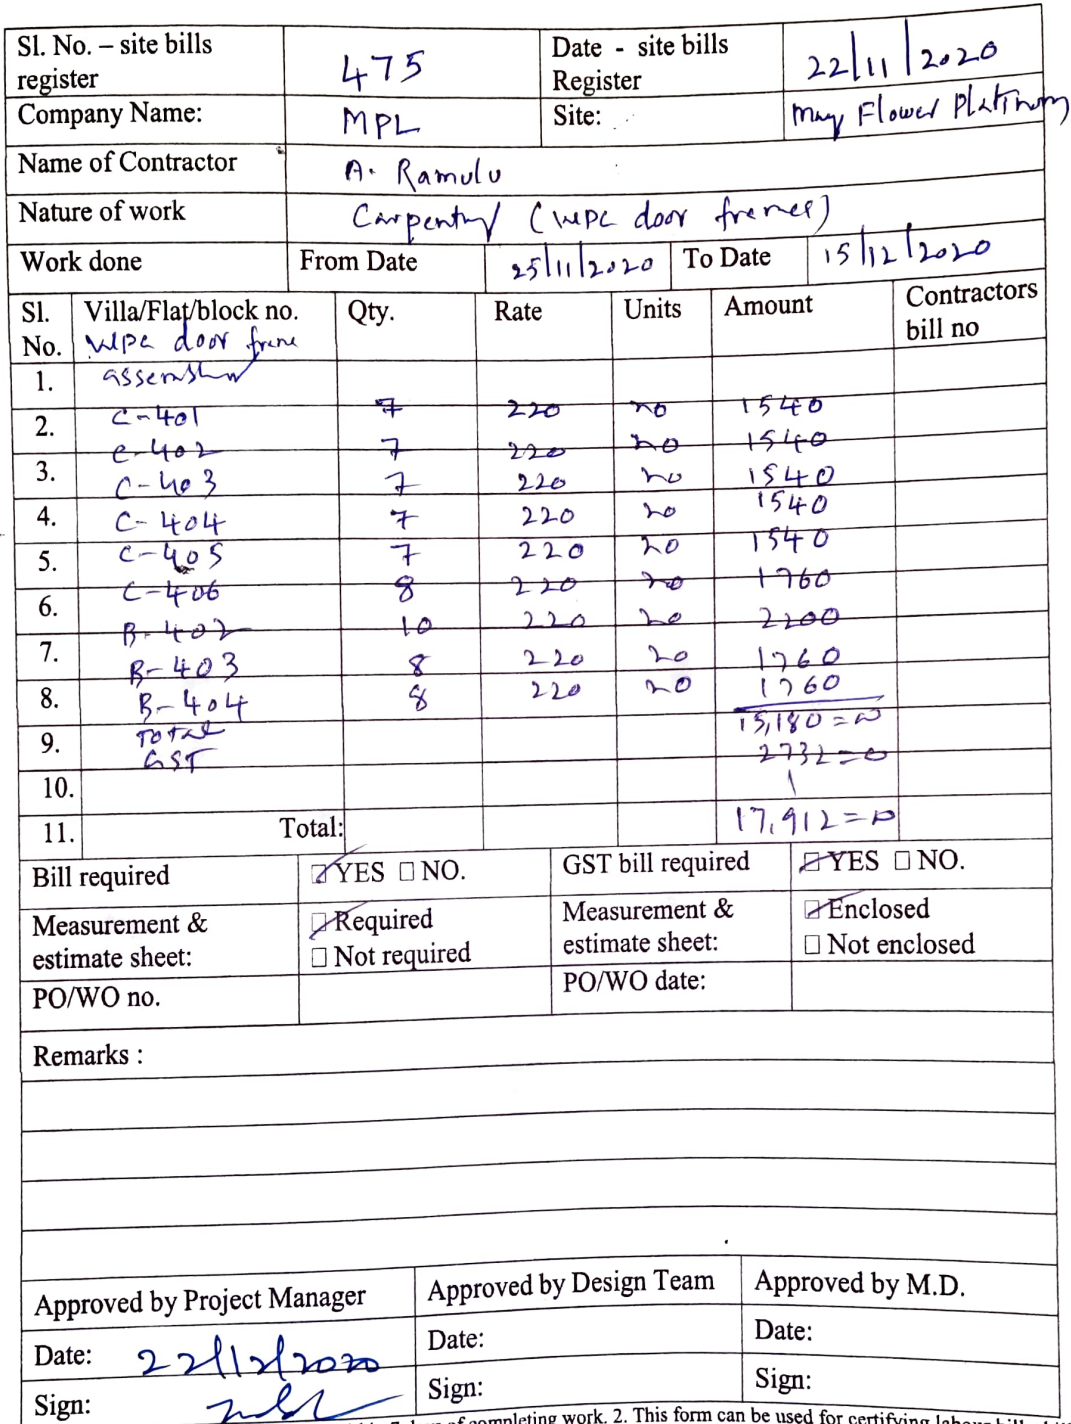 Sl. No. – site bills register 475 Date - site bills Register 22/11/2020
Company Name: MPL Site: May Flower Platinum
Name of Contractor A. Ramulu
Nature of work Carpentry (wpc door frames)
Work done From Date 25/11/2020 To Date 15/12/2020
Sl. No. Villa/Flat/block no. Qty. Rate Units Amount Contractors bill no
wpc door frame
1. assembly
C-401 7 220 no 1540
2. C-402 7 220 no 1540
3. C-403 7 220 no 1540
4. C-404 7 220 no 1540
5. C-405 7 220 no 1540
C-406 8 220 no 1760
6. B-402 10 220 no 2200
7. B-403 8 220 no 1760
8. B-404 8 220 no 1760
Total 15,180=00
9. GST 2732=00
10.
11. Total: 17,912=00
Bill required YES NO. GST bill required YES NO.
Measurement & estimate sheet: Required Not required Measurement & estimate sheet: Enclosed Not enclosed
PO/WO no. PO/WO date:
Remarks :
Approved by Project Manager Approved by Design Team Approved by M.D.
Date: 22/12/2020 Date: Date:
Sign: Sign: Sign:
of completing work. 2. This form can be used for certifying labour